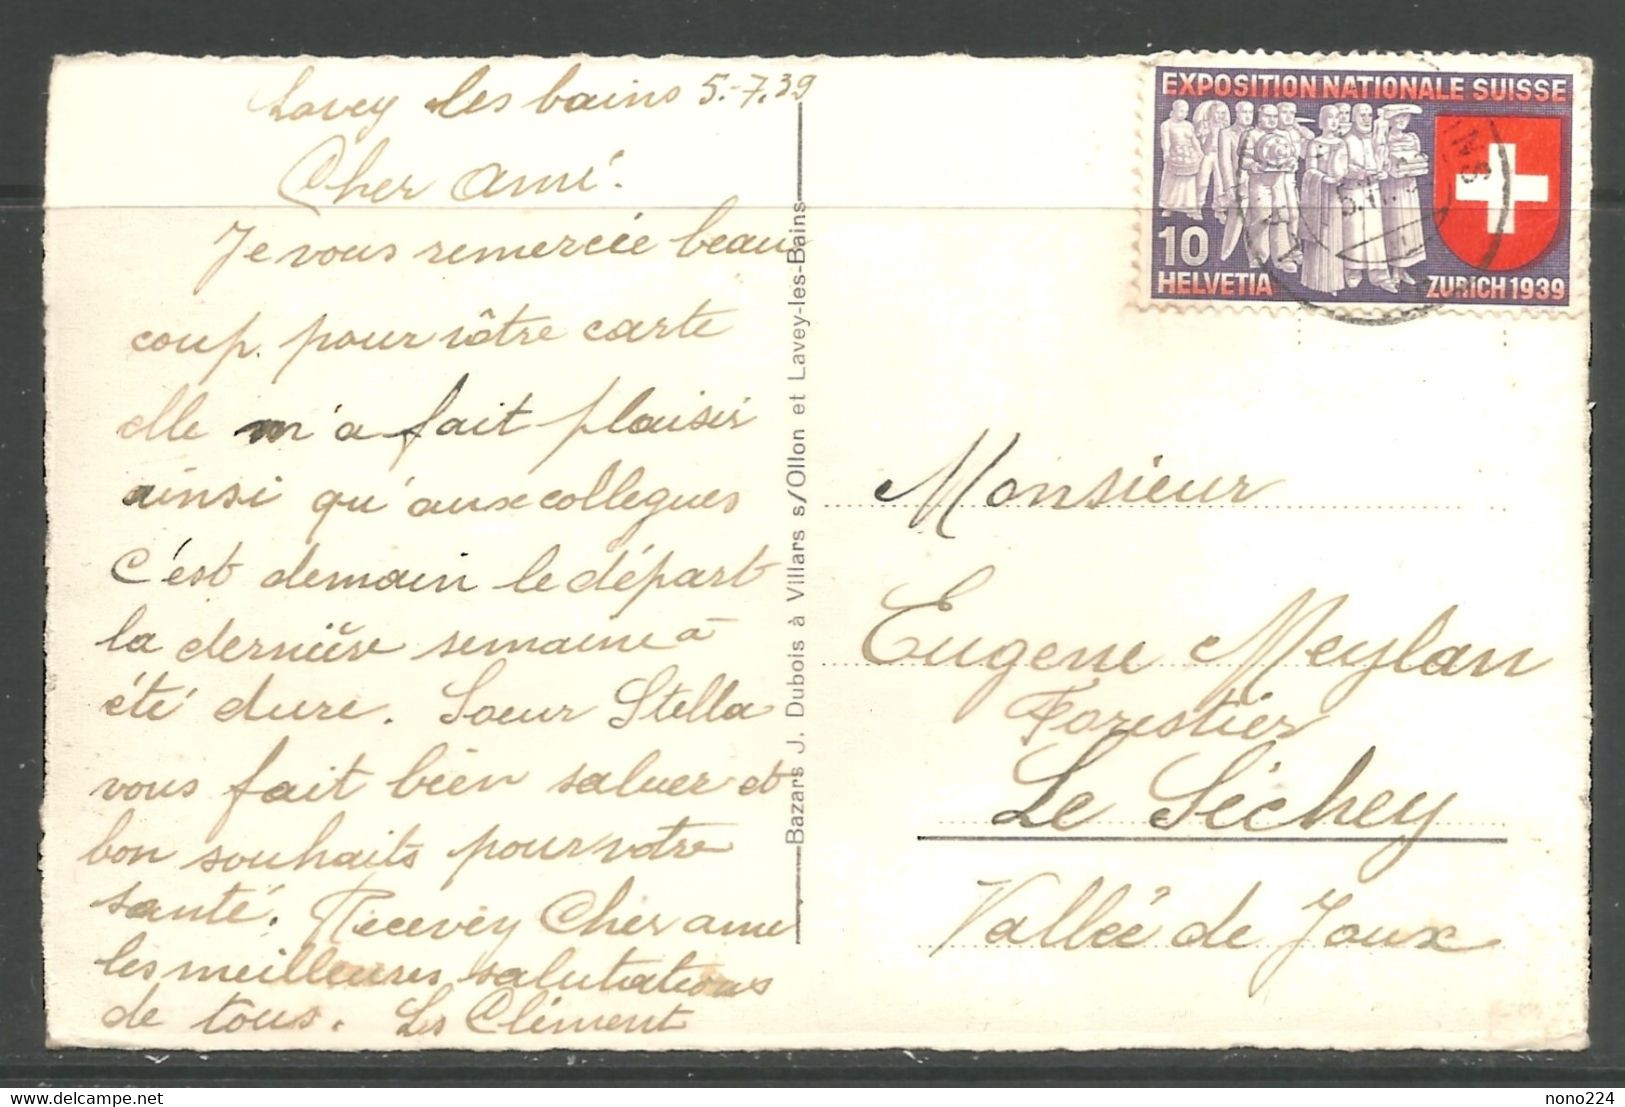 Lavey les bains 5.-7.39
Cher Ami.
Je vous remerciée beau
coup. pour vôtre carte
elle m'a fait plaisir
ainsi qu'aux collegues
C'est demain le départ
la dernière semaine a
été dure. Soeur Stella
vous fait bien saluer et
bon souhaits pour votre
santé. Recevez Cher ami
les meilleures salutations
de tous. Ls Clément
Bazars J. Dubois à Villars s/Ollon et Lavey-les-Bains
EXPOSITION NATIONALE SUISSE
10
HELVETIA
ZURICH 1939
Monsieur
Eugene Meylan
Forestier
Le Séchey
Vallée de Joux
nono224